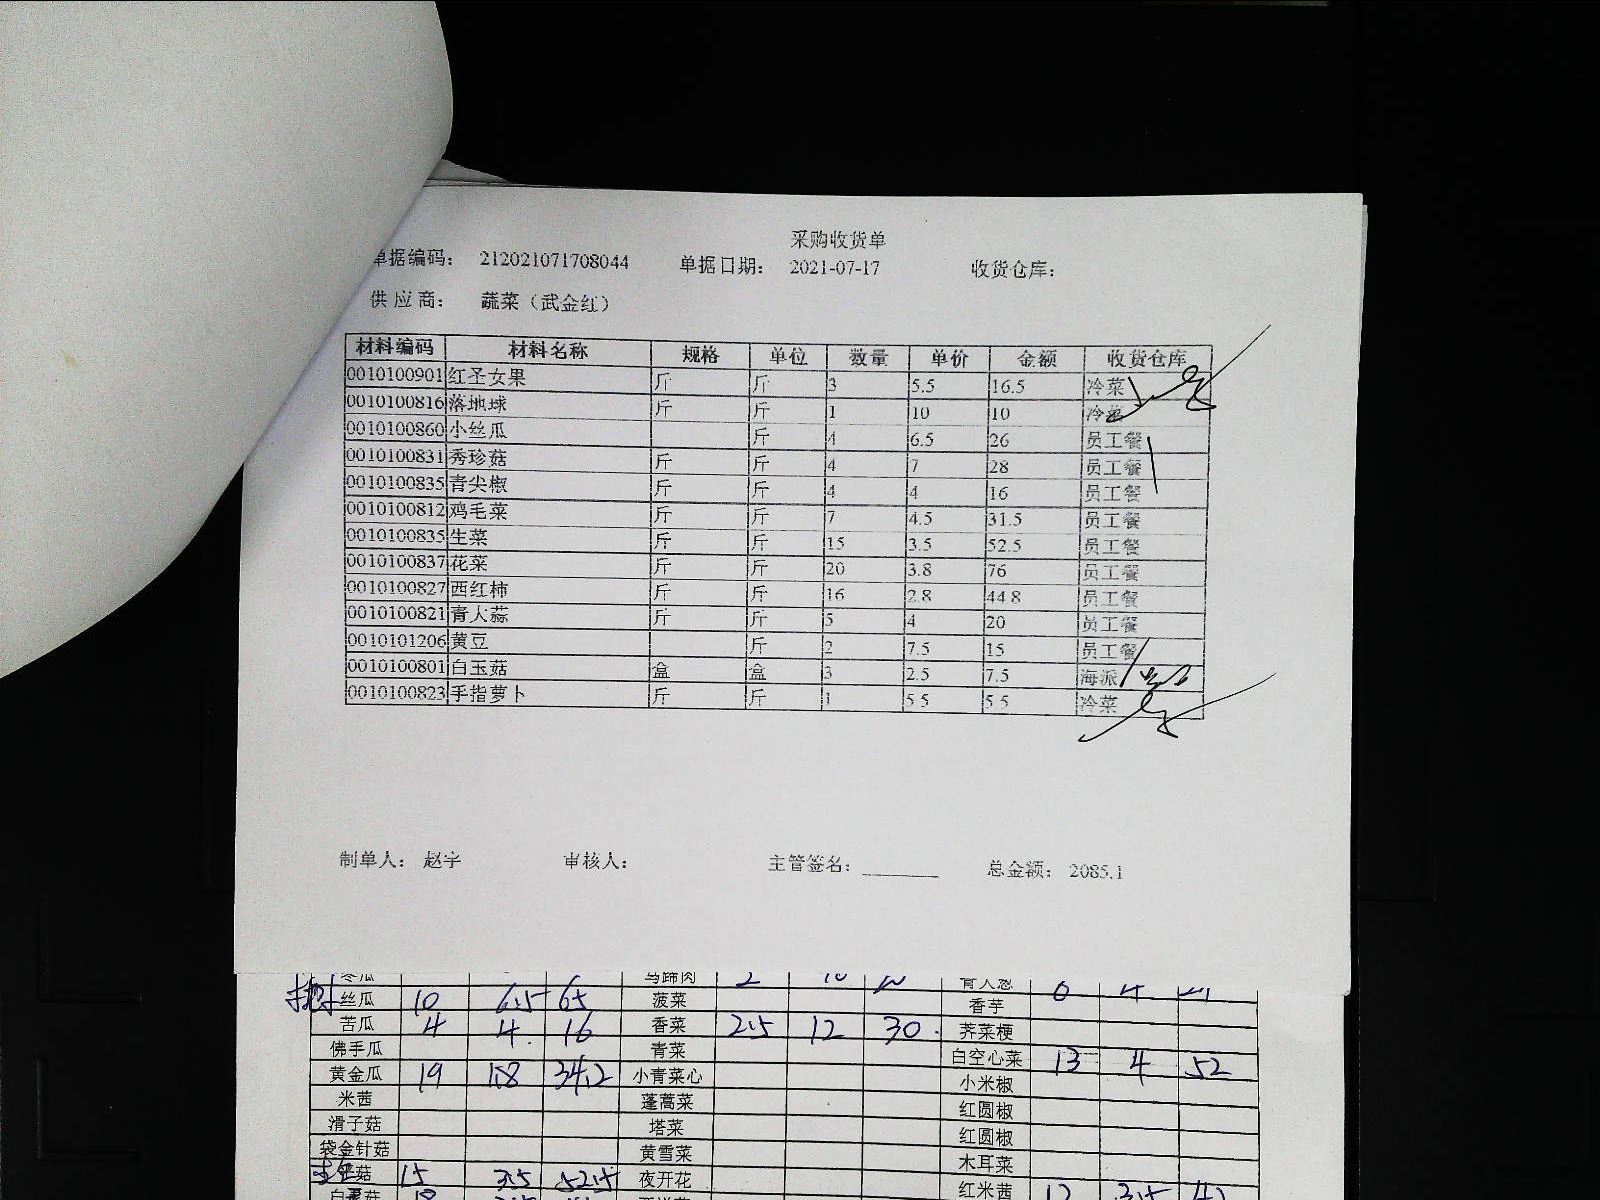 采购收货单
单据编码： 212021071708044 单据日期： 2021-07-17 收货仓库：
供 应 商： 蔬菜（武金红）
材料编码 材料名称 规格 单位 数量 单价 金额 收货仓库
0010100901 红圣女果 斤 斤 3 5.5 16.5 冷菜
0010100816 落地球 斤 斤 1 10 10 冷菜
0010100860 小丝瓜 斤 4 6.5 26 员工餐
0010100831 秀珍菇 斤 斤 4 7 28 员工餐
0010100835 青尖椒 斤 斤 4 4 16 员工餐
0010100812 鸡毛菜 斤 斤 7 4.5 31.5 员工餐
0010100835 生菜 斤 斤 15 3.5 52.5 员工餐
0010100837 花菜 斤 斤 20 3.8 76 员工餐
0010100827 西红柿 斤 斤 16 2.8 44.8 员工餐
0010100821 青大蒜 斤 斤 5 4 20 员工餐
0010101206 黄豆 斤 2 7.5 15 员工餐
0010100801 白玉菇 盒 盒 3 2.5 7.5 海派
0010100823 手指萝卜 斤 斤 1 5.5 5.5 冷菜
制单人： 赵宇 审核人： 主管签名： 总金额： 2085.1
冬瓜 马蹄肉 2 10 青大葱
丝瓜 10 6.5 65 菠菜 香芋
苦瓜 4 4 16 香菜 2.5 12 30 荠菜梗
佛手瓜 青菜 白空心菜 13 4 52
黄金瓜 19 1.8 34.2 小青菜心 小米椒
米茜 蓬蒿菜 红圆椒
滑子菇 塔菜 红圆椒
袋金针菇 黄雪菜 木耳菜
菇 15 3.5 52.5 夜开花 红米茜 12 3.5 42